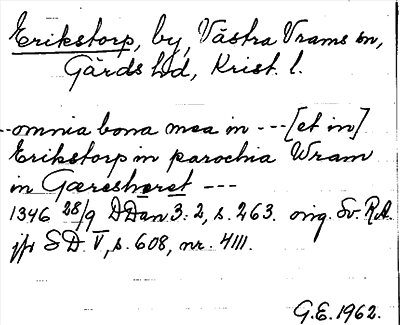 Erikstorp, by, Västra Vrams sn,
Gärds hd, Krist. l.
--omnia bona mea in --- [et in]
Erikstorp in parochia Wram
in Gæresheret ---
1346 28/9 DDan 3:2, s. 263. orig. Sv. R.A.
jfr SD V, s. 608, nr. 4111.
G.E. 1962.